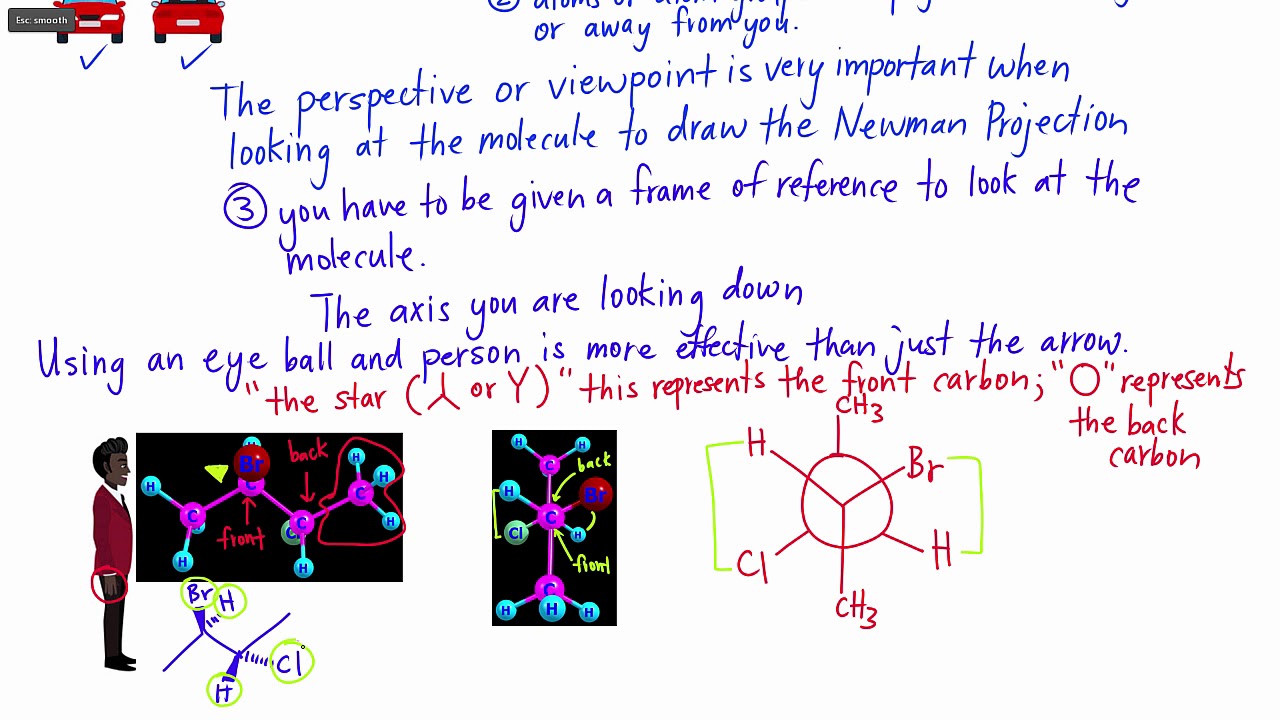 Esc: smooth
②
or away from you.
The perspective or viewpoint is very important when
looking at the molecule to draw the Newman Projection
③ you have to be given a frame of reference to look at the
molecule.
The axis you are looking down
Using an eye ball and person is more effective than just the arrow.
"the star (⅄ or Y)" this represents the front carbon; "O" represents
the back
carbon
H
Br
C
H
C
H
H
back
front
C
Cl
H
C
H
H
H
H
H
C
back
H
Br
C
Cl
H
front
C
H
H
H
CH3
H
Br
Cl
H
CH3
Br
H
Cl
H